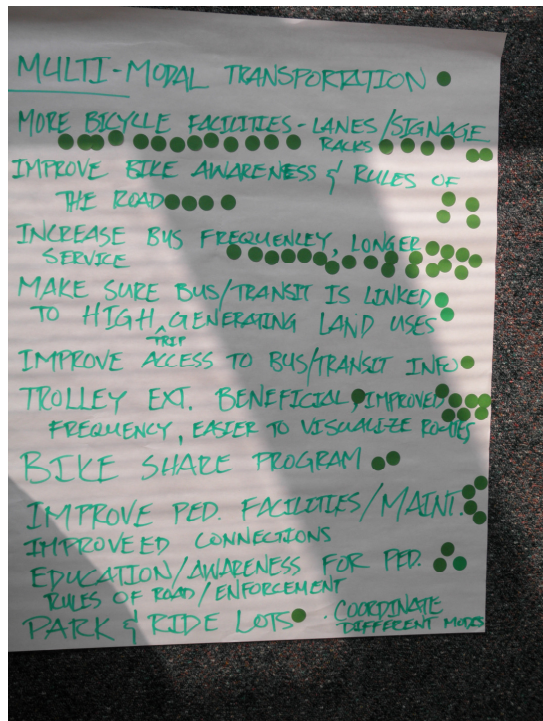 MULTI-MODAL TRANSPORTATION
MORE BICYCLE FACILITIES - LANES/SIGNAGE
RACKS
IMPROVE BIKE AWARENESS & RULES OF
THE ROAD
INCREASE BUS FREQUENCEY, LONGER
SERVICE
MAKE SURE BUS/TRANSIT IS LINKED
TO HIGH ^ GENERATING LAND USES
TRIP
IMPROVE ACCESS TO BUS/TRANSIT INFO
TROLLEY EXT. BENEFICIAL, IMPROVED
FREQUENCY, EASIER TO VISUALIZE ROUTES
BIKE SHARE PROGRAM
IMPROVE PED. FACILITIES/MAINT.
IMPROVEED CONNECTIONS
EDUCATION/AWARENESS FOR PED.
RULES OF ROAD/ENFORCEMENT
PARK & RIDE LOTS · COORDINATE
DIFFERENT MODES